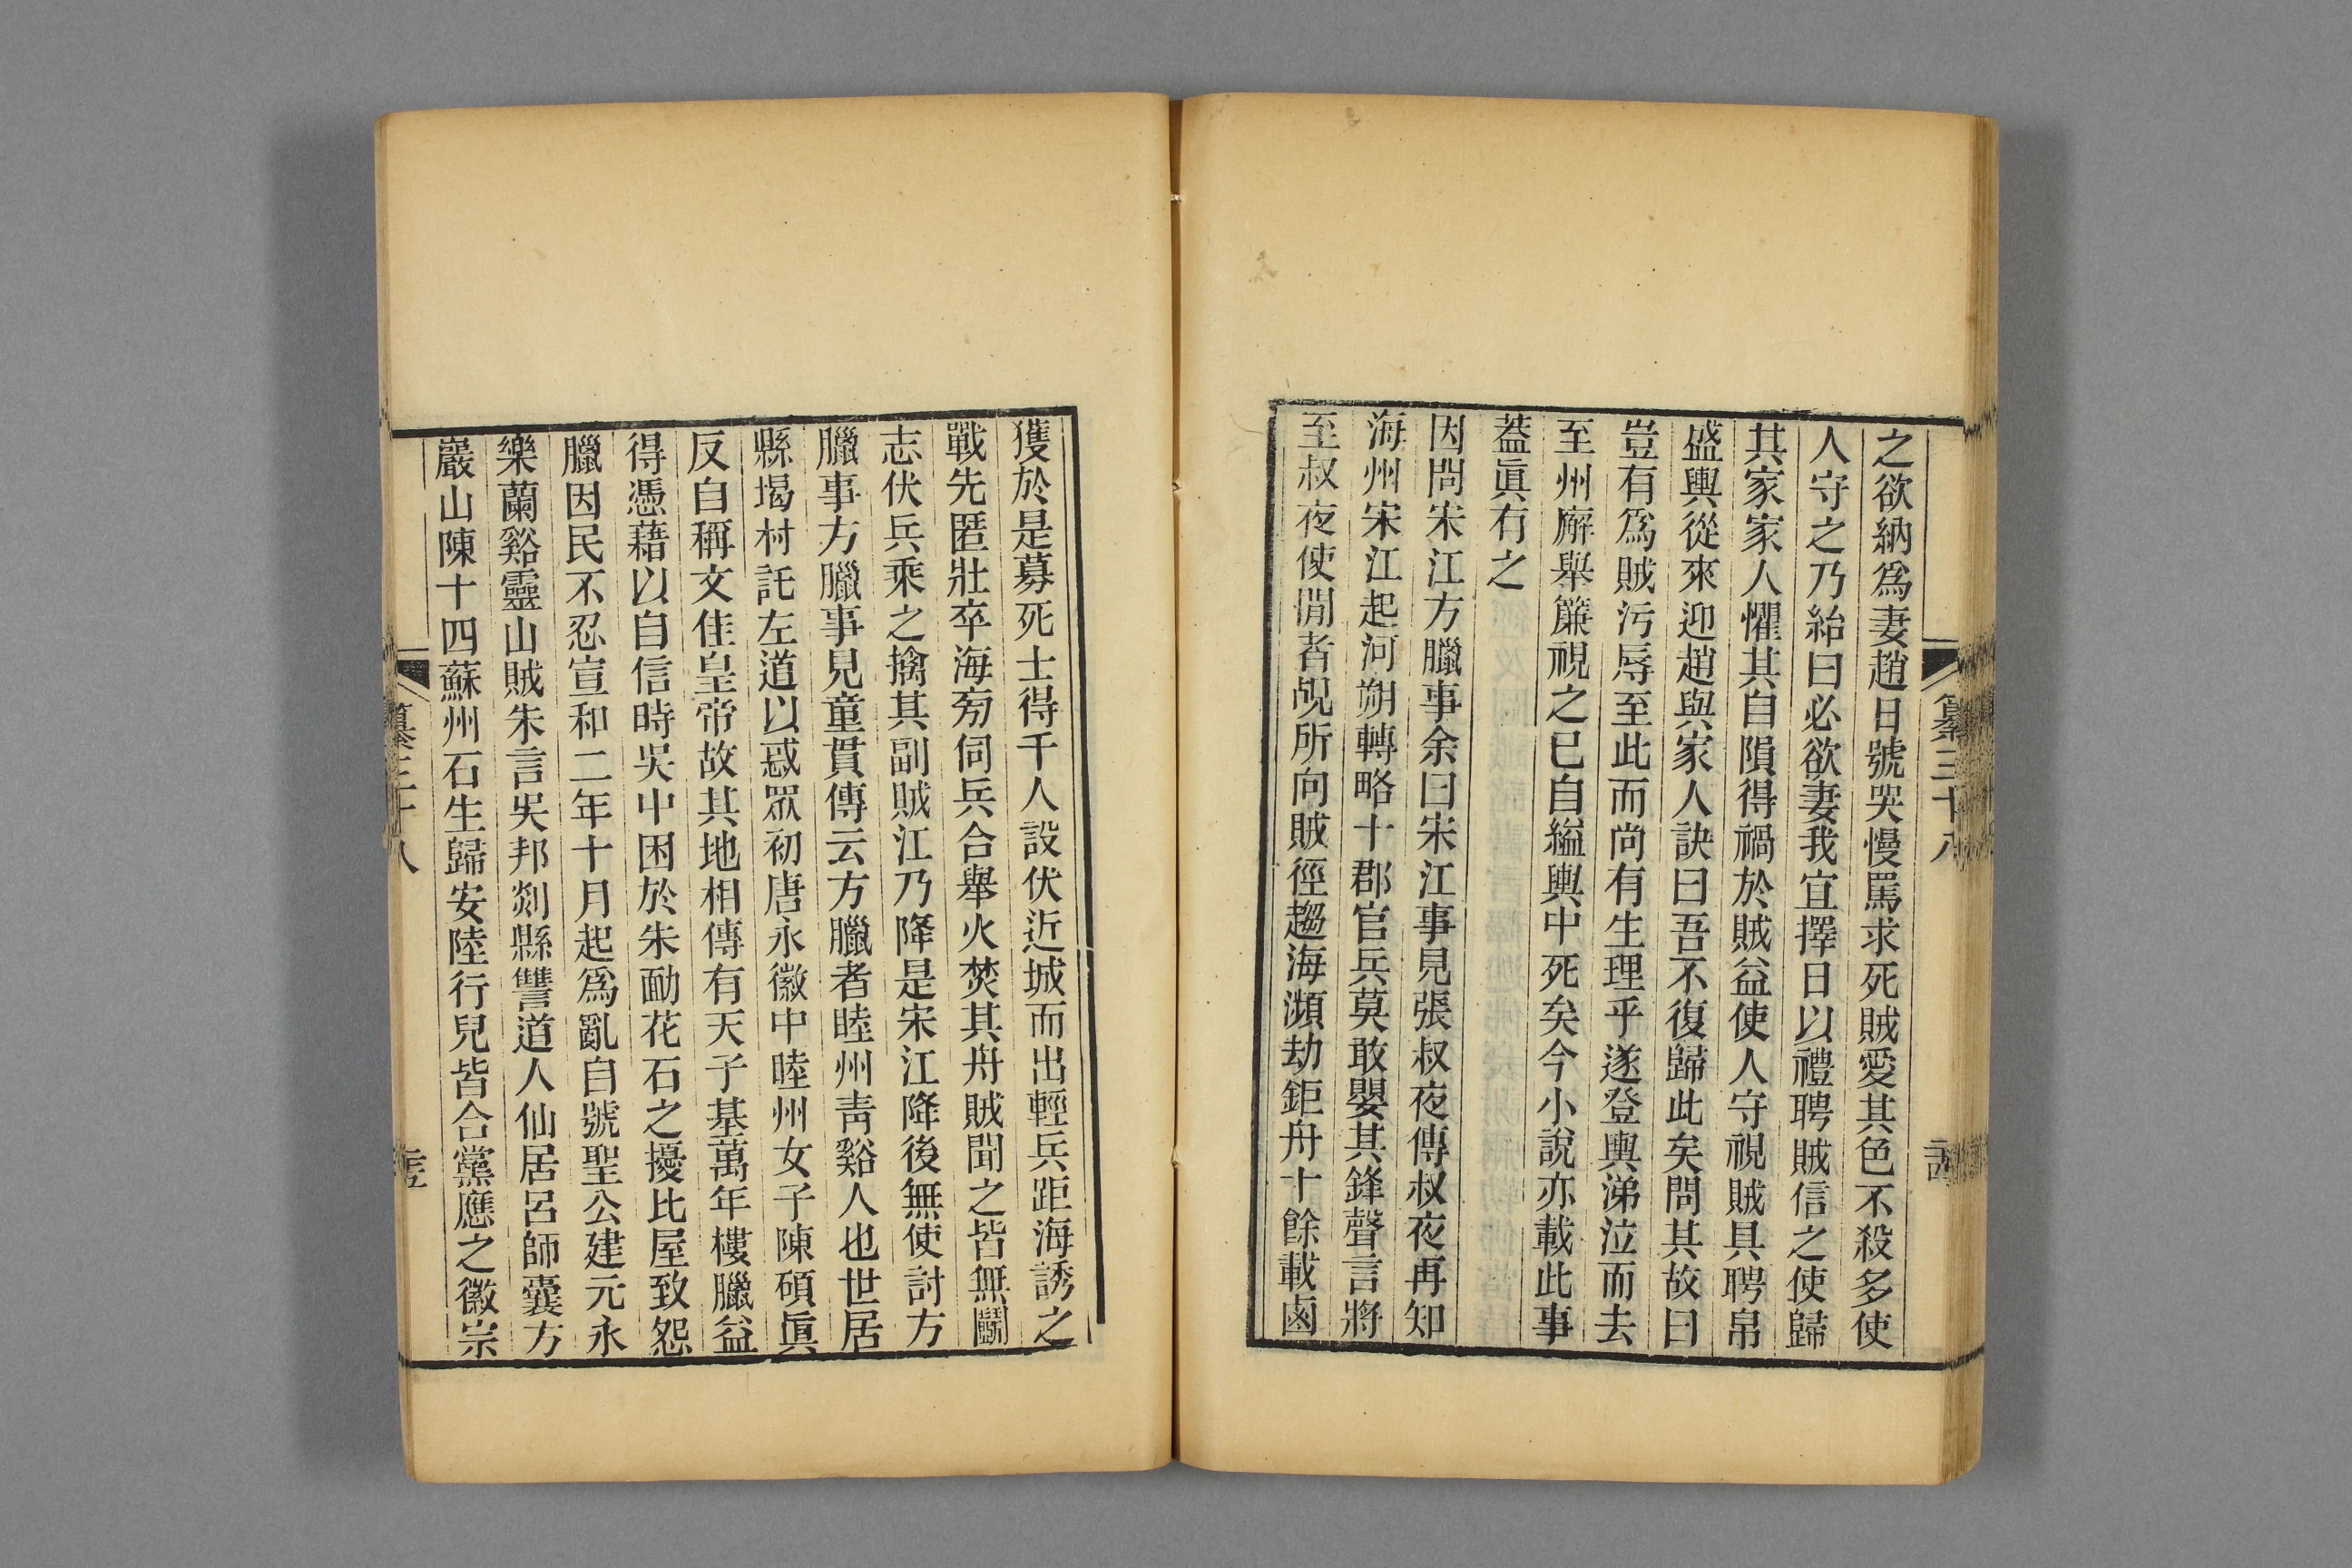 之欲納爲妻趙日號哭慢罵求死賊愛其色不殺多使
人守之乃紿曰必欲妻我宜擇日以禮聘賊信之使歸
其家家人懼其自隕得禍於賊益使人守視賊具聘帛
盛輿從來迎趙與家人訣曰吾不復歸此矣問其故曰
豈有爲賊污辱至此而尚有生理乎遂登輿涕泣而去
至州廨舉簾視之已自縊輿中死矣今小說亦載此事
葢眞有之
因問宋江方臘事余曰宋江事見張叔夜傳叔夜再知
海州宋江起河朔轉略十郡官兵莫敢嬰其鋒聲言將
至叔夜使閒者覘所向賊徑趨海瀕劫鉅舟十餘載鹵
纂三十八
獲於是募死士得千人設伏近城而出輕兵距海誘之
戰先匿壯卒海旁伺兵合舉火焚其舟賊聞之皆無鬬
志伏兵乘之擒其副賊江乃降是宋江降後無使討方
臘事方臘事見童貫傳云方臘者睦州靑谿人也世居
縣堨村託左道以惑眾初唐永徽中睦州女子陳碩眞
反自稱文佳皇帝故其地相傳有天子基萬年樓臘益
得憑藉以自信時吳中困於朱勔花石之擾比屋致怨
臘因民不忍宣和二年十月起爲亂自號聖公建元永
樂蘭谿靈山賊朱言吳邦剡縣讐道人仙居呂師囊方
巖山陳十四蘇州石生歸安陸行兒皆合黨應之徽宗
纂三十八